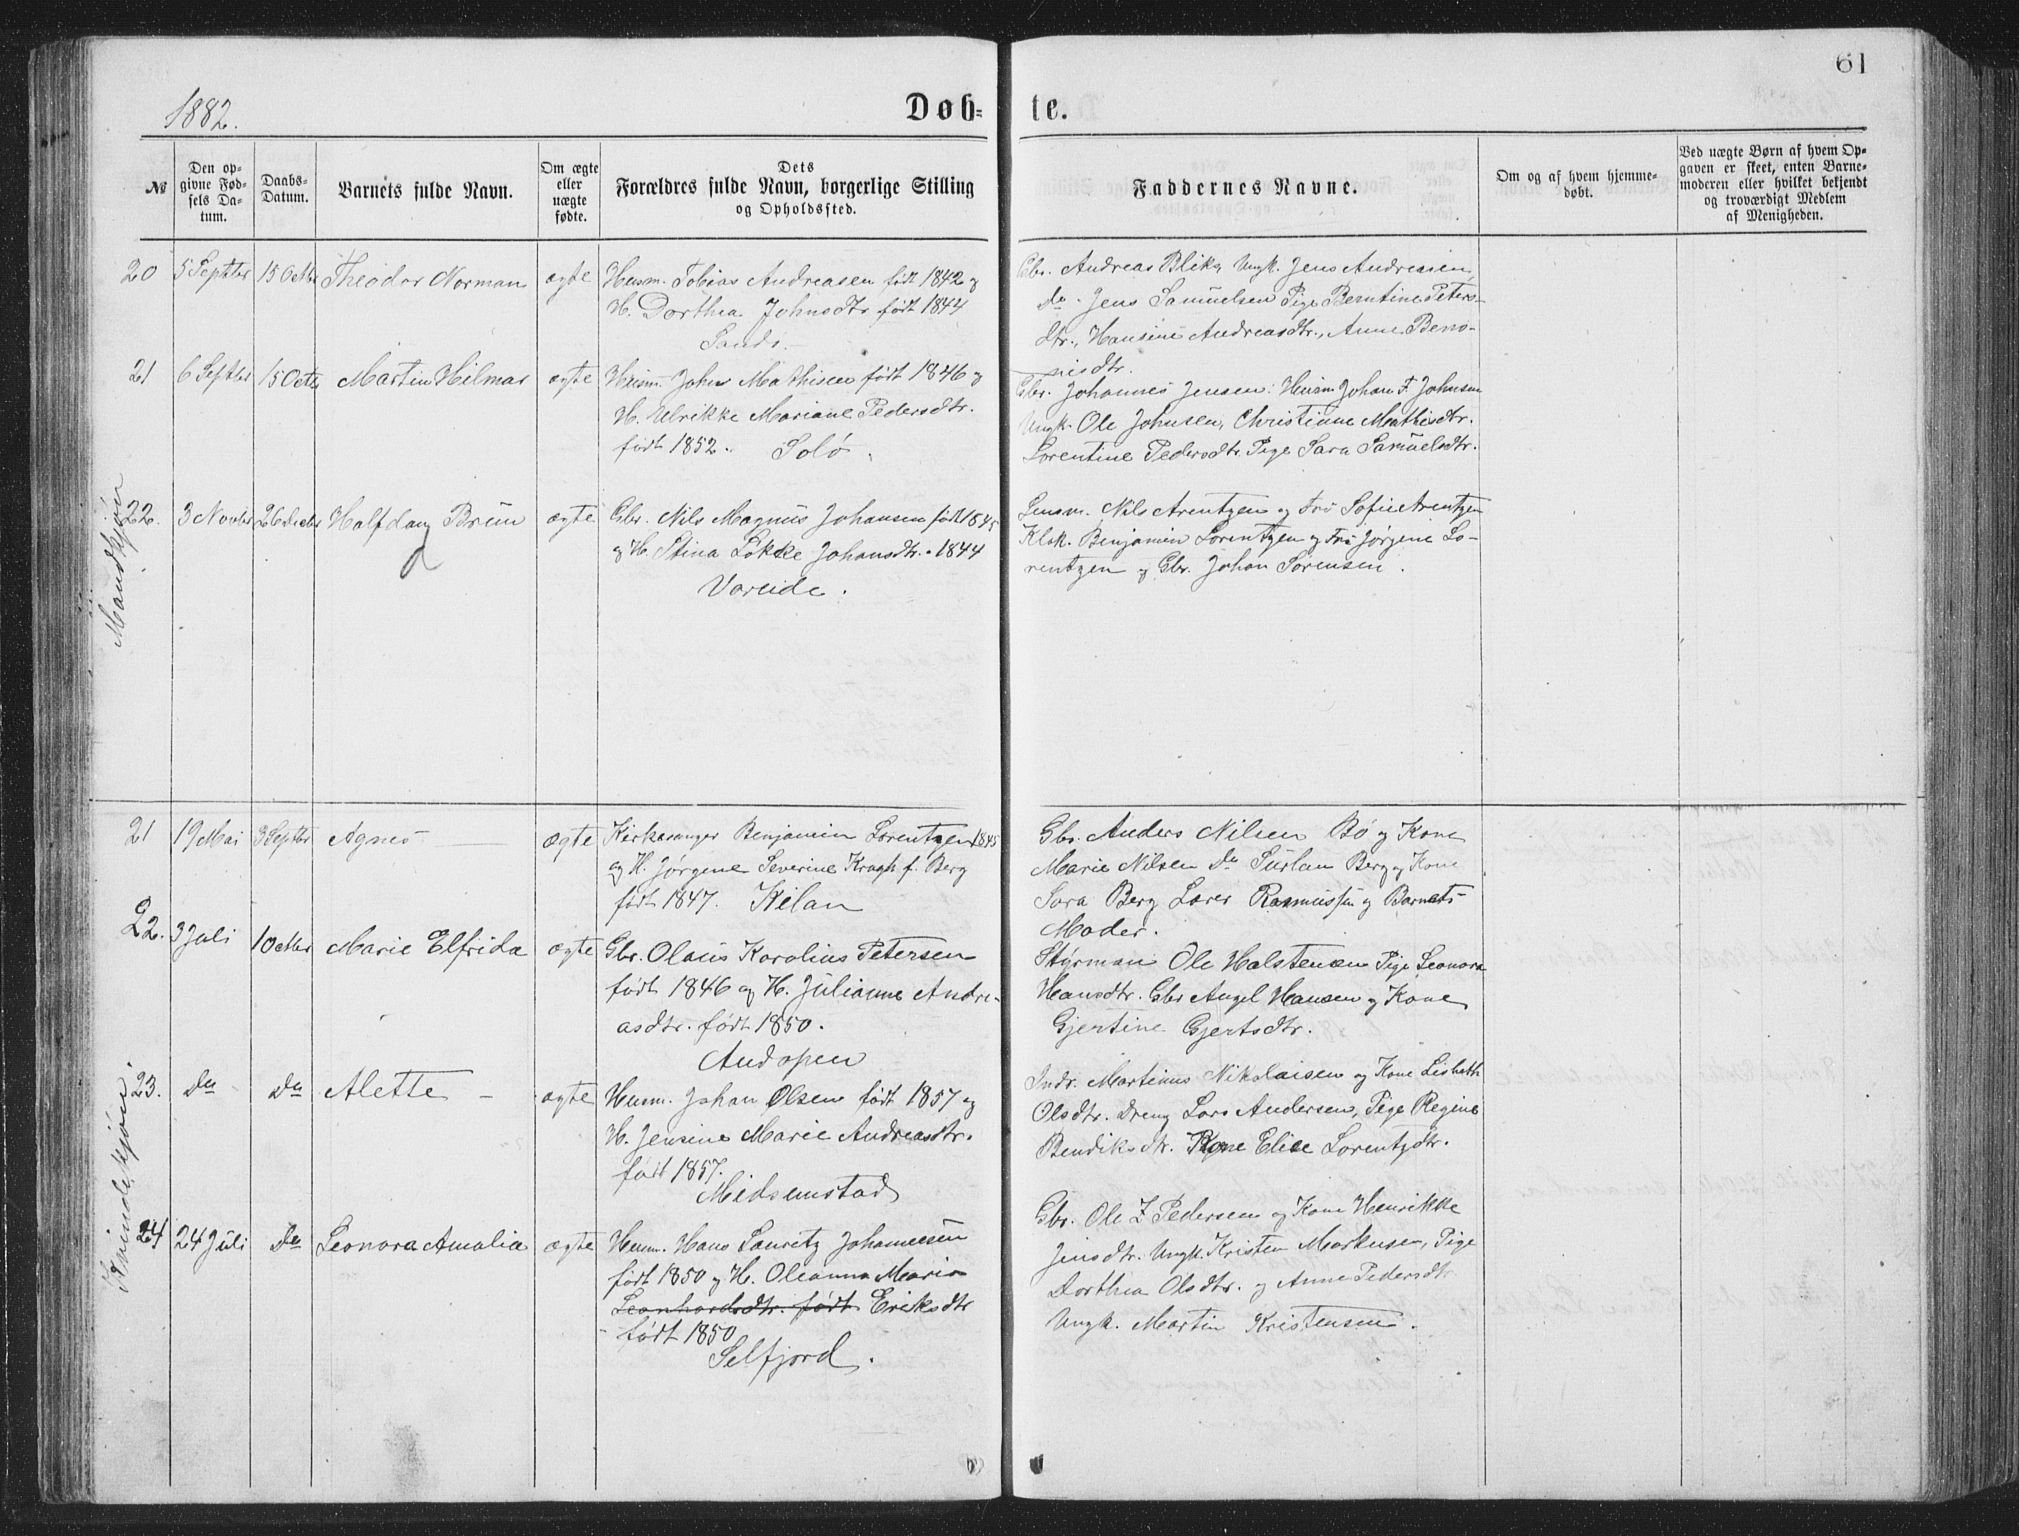 61
1882.
Døb-te.
№
Den op-
givne Fød-
sels Da-
tum.
Daabs-
Datum.
Barnets fulde Navn.
Om ægte
eller
uægte
fødte.
Dets
Forældres fulde Navn, borgerlige Stilling
og Opholdssted.
Faddernes Navne.
Om og af hvem hjemme-
døbt.
Ved uægte Børn af hvem Op-
gaven er skeet, enten Barne-
moderen eller hvilket bekjendt
og troværdigt Medlem
af Menigheden.
Mandkjøn
20 5 Septbr 15 Octbr Theodor Norman ægte
Husm. Tobias Andreasen født 1842 og
H. Dorthea Johnsdtr født 1844
Sandø.
Gbr. Andreas Blik, Ungk. Jens Andreasen,
Do. Jens Samuelsen Pige Berntine Peters-
dtr., Hansine Andreasdtr., Anne Beno-
nisdtr.
21 6 Septbr 15 Octbr Martin Hilmar ægte
Husm. John Mathisen født 1846 og
H. Ulrikke Mariane Pedersdtr.
født 1852. Solø.
Gbr. Johannes Jensen. Husm Johan F. Johnsen
Ungk. Ole Johnsen, Christianne Mathisdtr.
Lorentine Pedersdtr. Pige Sara Samuelsdtr.
22. 3 Novbr 26 Decbr Halfdan Brun ægte
Gbr. Nils Magnus Johansen født 1845
og H. Stina Løkke Johansdtr. 1844
Vareide.
Lensm. Nils Arentzen og Fru Sofie Arentzen
Klok. Benjamin Lorentzen og Fru Jørgine Lo-
rentzen og Gbr. Johan Sørensen.
Kvindekjøn
21 19 Mai 3 Septbr Agnes ægte
Kirkesanger Benjamin Lorentzen 1845
og H. Jørgene Severine Kragh f. Berg
født 1847. Kilan
Gbr. Anders Nilsen Bø og Kone
Marie Nilsen Do Surlan Berg og Kone
Sara Berg Lærer Rasmussen og Barnets
Moder.
22. 3 Juli 1 Octbr Marie Elfrida ægte
Gbr. Olaus Karolius Petersen
født 1846 og H. Julianne Andre-
asdtr. født 1850.
Andopen
Styrman Ole Halstensen Pige Leonora
Hansdtr. Gbr Angel Hansen og Kone
Gjertine Gjertsdtr.
23. Do Do Alette ægte
Husm. Johan Olsen født 1857 og
H. Jensine Marie Andreasdtr.
født 1857.
Midsemstad
Indr. Martinus Nikolaisen og Kone Lisbeth
Olsdtr. Dreng Lars Andersen, Pige Regine
Bendiksdtr. Kone Elise Lorentzdtr.
24 24 Juli Do Leonora Amalia ægte
Husm. Hans Lauritz Johannesen
født 1850 og H. Oleanna Marie
Leonhardsdtr. født Eriksdtr
født 1850
Selfjord.
Gbr. Ole Z Pedersen og Kone Henrikke
Jensdtr. Ungk. Kristen Markusen, Pige
Dorthea Olsdtr. og Anne Pedersdtr
Ungk. Martin Kristensen.